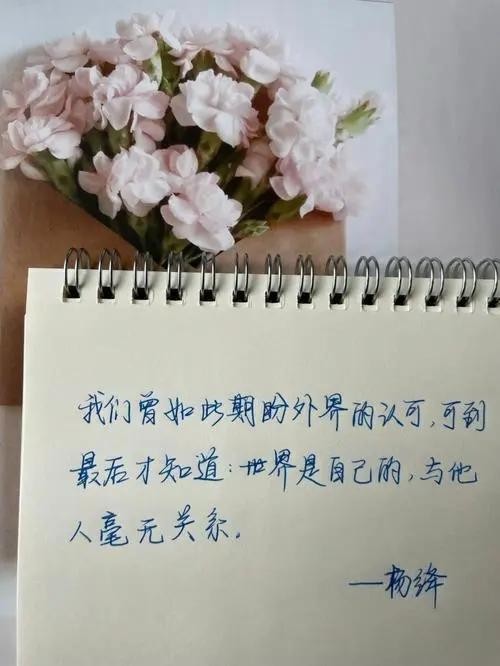 我们曾如此期盼外界的认可,可到
最后才知道:世界是自己的,与他
人毫无关系。
—杨绛